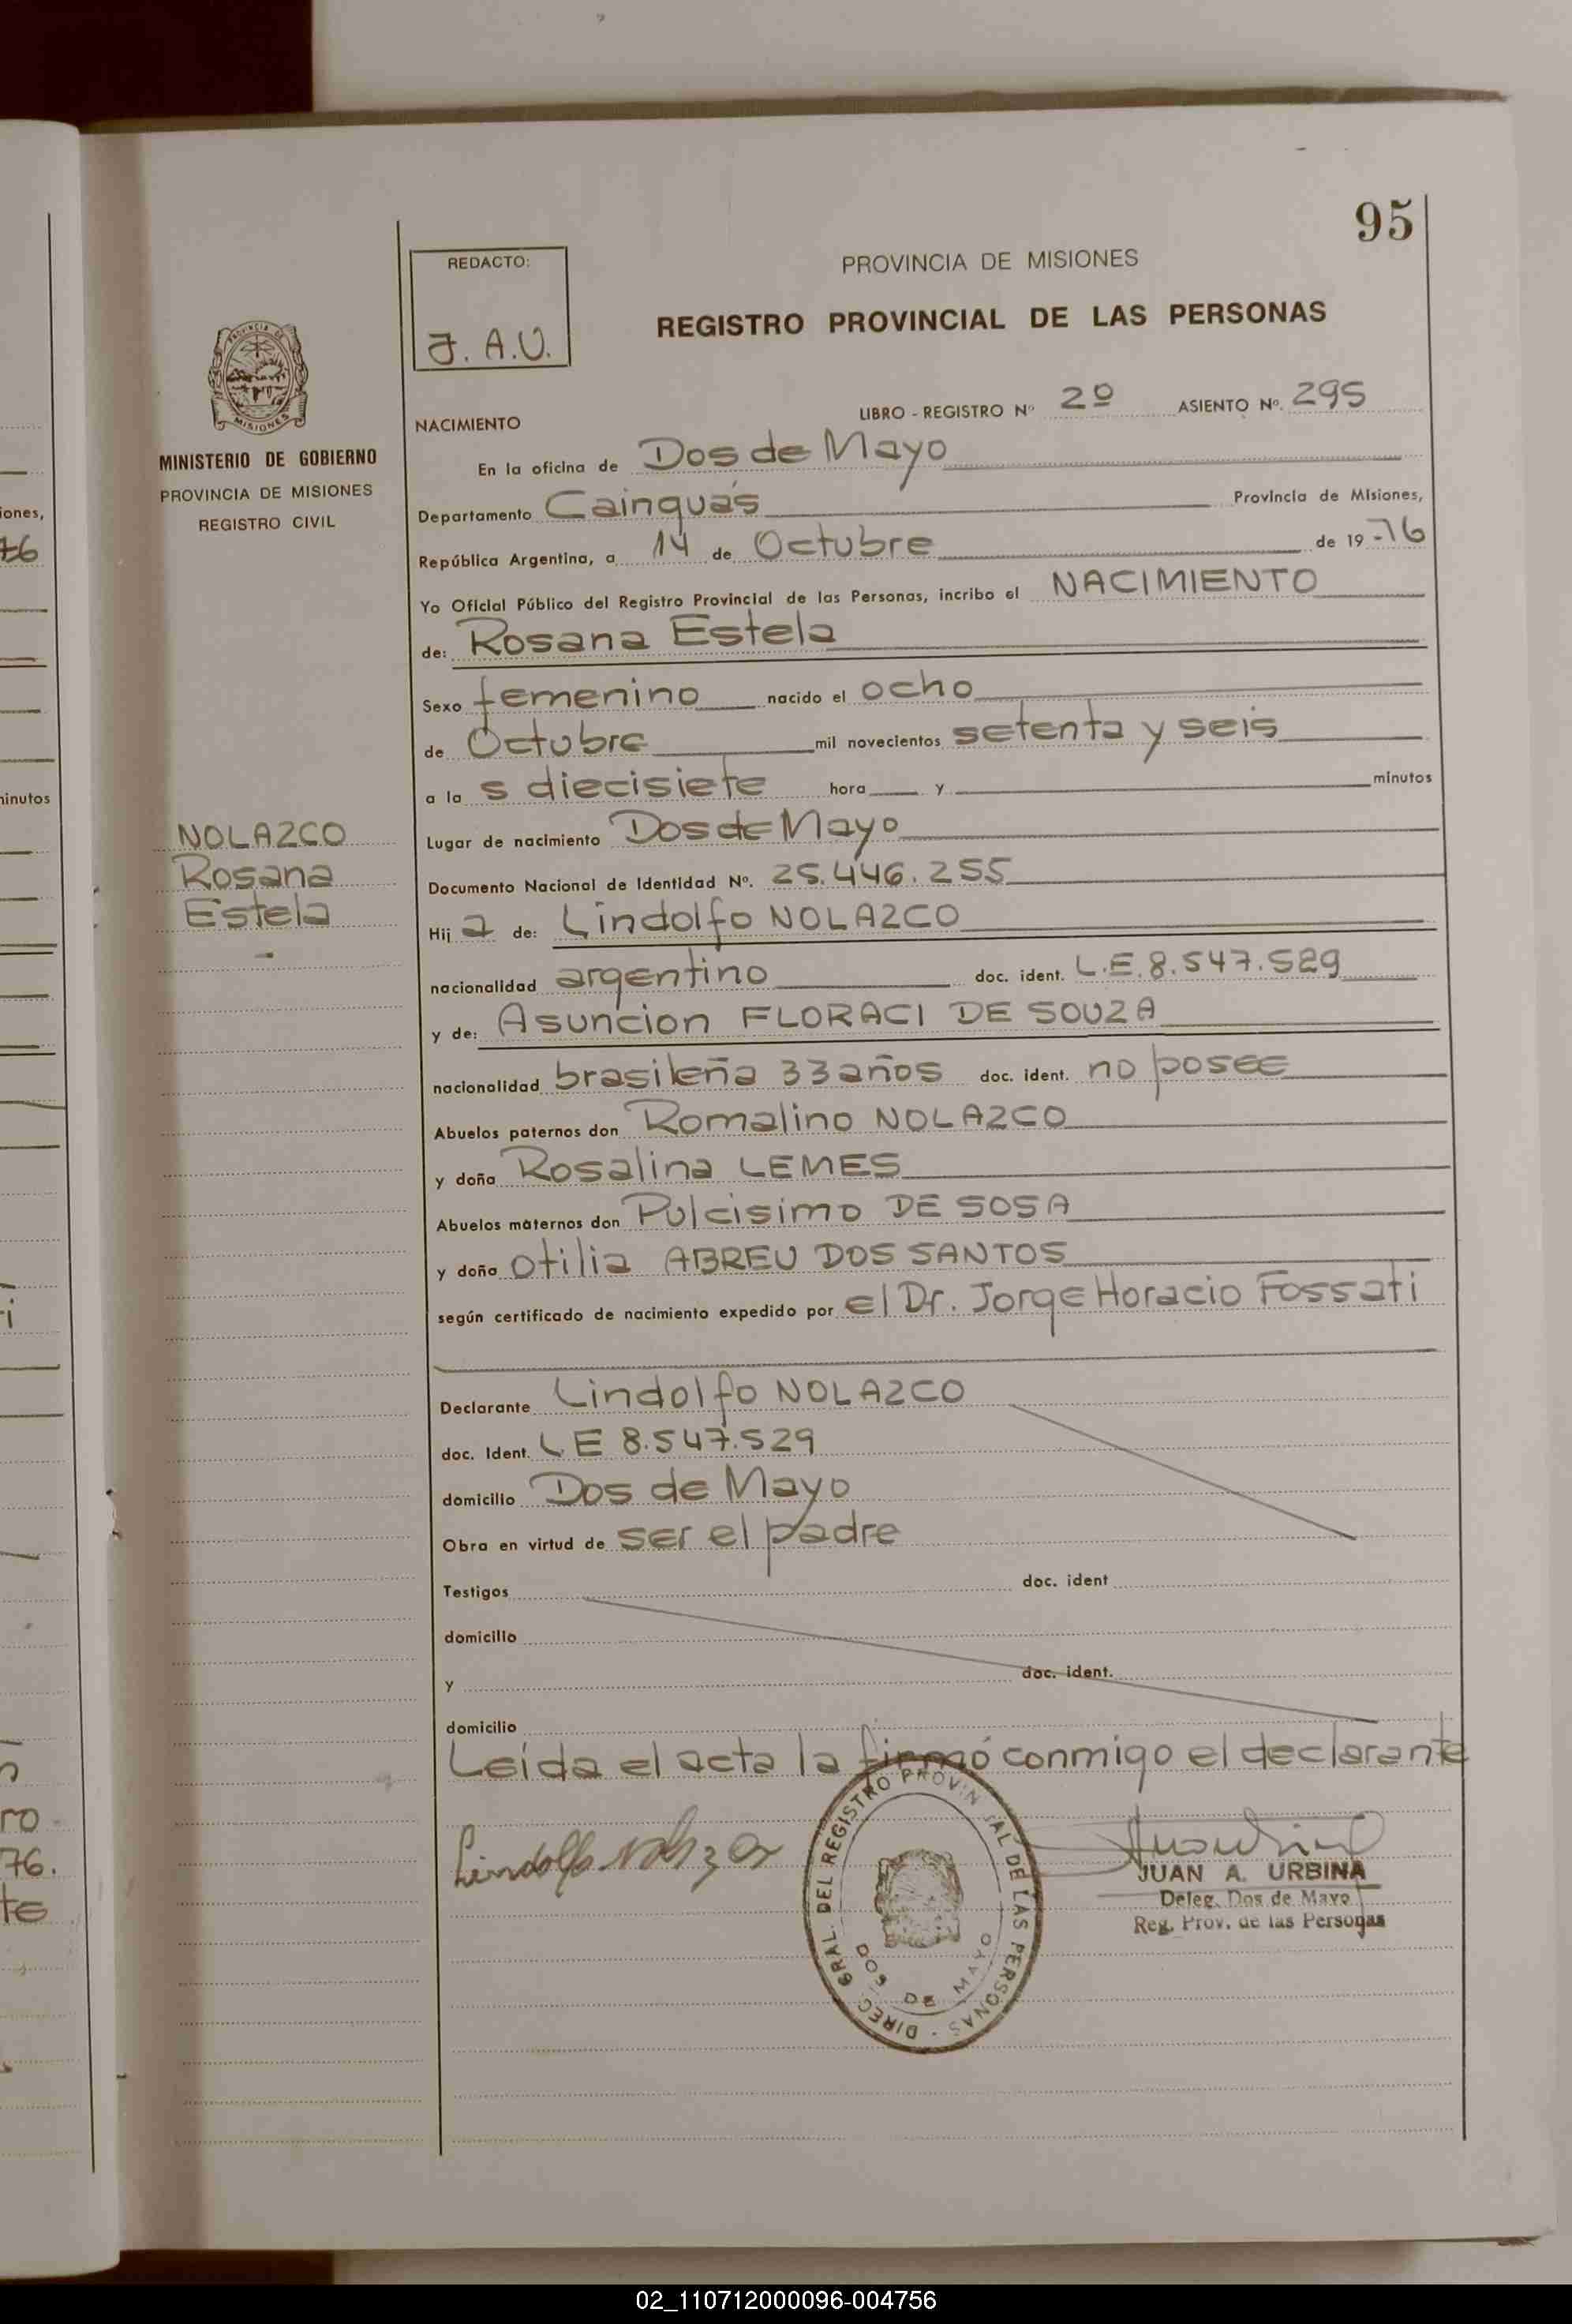 95
REDACTO:
J. A. U.
PROVINCIA DE MISIONES
REGISTRO PROVINCIAL DE LAS PERSONAS
PROVINCIA DE
MISIONES
MINISTERIO DE GOBIERNO
PROVINCIA DE MISIONES
REGISTRO CIVIL
NACIMIENTO LIBRO - REGISTRO Nº 2º ASIENTO Nº. 295
En la oficina de Dos de Mayo
Departamento Cainguás Provincia de Misiones,
República Argentina, a 14 de Octubre de 19 -76
Yo Oficial Público del Registro Provincial de las Personas, incribo el NACIMIENTO
de: Rosana Estela
Sexo femenino nacido el ocho
de Octubre mil novecientos setenta y seis
a la s diecisiete hora y minutos
NOLAZCO
Rosana
Estela
-
Lugar de nacimiento Dos de Mayo
Documento Nacional de Identidad Nº. 25.446.255
Hij a de: Lindolfo NOLAZCO
nacionalidad argentino doc. ident. L.E. 8.547.529
y de: Asuncion FLORACI DE SOUZA
nacionalidad brasileña 33 años doc. ident. no posee
Abuelos paternos don Romalino NOLAZCO
y doña Rosalina LEMES
Abuelos maternos don Pulcisimo DE SOSA
y doña Otilia ABREU DOS SANTOS
según certificado de nacimiento expedido por el Dr. Jorge Horacio Fossati
Declarante Lindolfo NOLAZCO
doc. Ident. L E 8.547.529
domicilio Dos de Mayo
Obra en virtud de ser el padre
Testigos doc. ident
domicilio
y doc. ident.
domicilio
Leída el acta la firmó conmigo el declarante
Lindolfo Nolazco
DIREC. GRAL. DEL REGISTRO PROVINCIAL DE LAS PERSONAS -
DOS DE MAYO
JUAN A. URBINA
Deleg. Dos de Mayo
Reg. Prov. de las Personas
iones,
76
minutos
i
ro
76.
te
02_110712000096-004756